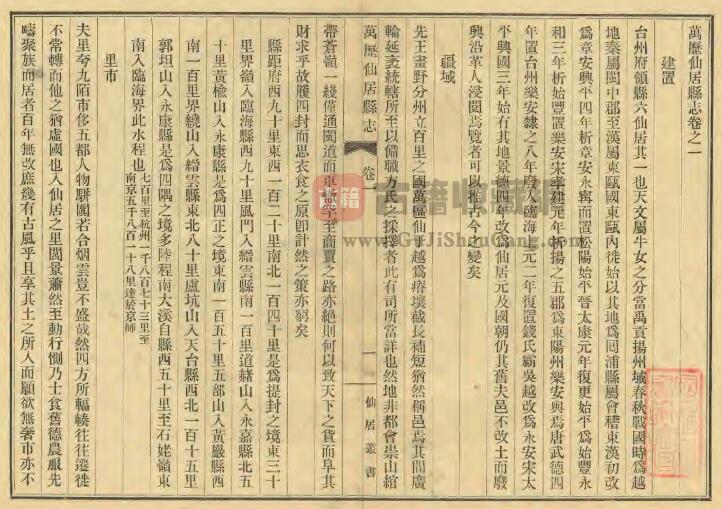 萬歷仙居縣志卷之一
建置
台州府領縣六仙居其一也天文屬牛女之分當禹貢揚州域春秋戰國時爲越
地秦屬閩中郡至漢屬東甌國東甌內徙始以其地爲回浦縣屬會稽東漢初改
爲章安興平四年析章安永寧而置松陽始平晉太康元年復更始平爲始豐永
和三年析始豐置樂安宋孝建元年析揚之五郡爲東陽州樂安與焉唐武德四
年置台州樂安隸之八年廢入臨海上元二年復置錢氏霸吳越改爲永安宋太
平興國三年始有其地景德四年改爲仙居元及國朝仍其舊夫邑不改土而廢
興沿革人浸閱焉覽者可以推古今之變矣
疆域
先王畫野分州立百里之國萬區仙於越爲瘠壤截長補短猶然稱邑焉其間廣
輪延袤統轄所至以備職方氏之採擇者此有司所當詳也然地非都會崇山綰
萬歷仙居縣志
卷一
一
仙居叢書
帶蒼嶺一綫僅通閩道而車
至商賈之路亦絕則何以致天下之貨而阜其
財求乎故履四封而思衣食之原卽計然之策亦窮矣
縣距府西九十里東西一百二十里南北一百四十里是爲提封之境東三十
里界嶺入臨海縣西九十里風門入縉雲縣南一百里道緒山入永嘉縣北五
十里黃檜山入永康縣是爲四正之境東南一百五十里五部山入黃巖縣西
南一百里界繞山入縉雲縣東北八十里盧坑山入天台縣西北一百十五里
郭坦山入永康縣是爲四隅之境多陸程南大溪自縣西五十里至石姥嶺東
南入臨海界此水程也七百里至杭州一千八百七十三里至
南京五千八百一十八里達於京師
里市
夫里夸九陌市侈五都人物駢闐若合烟雲豈不盛哉然四方所輻輳往往遷徙
不常轉而他之猶虛國也入仙居之里閈景蕭然至動行惻乃士食舊德農服先
疇聚族而居者百年無改庶幾有古風乎且享其土之所入而願欲無奢市亦不
古籍
古籍收藏網
www.GuJiShouCang.com